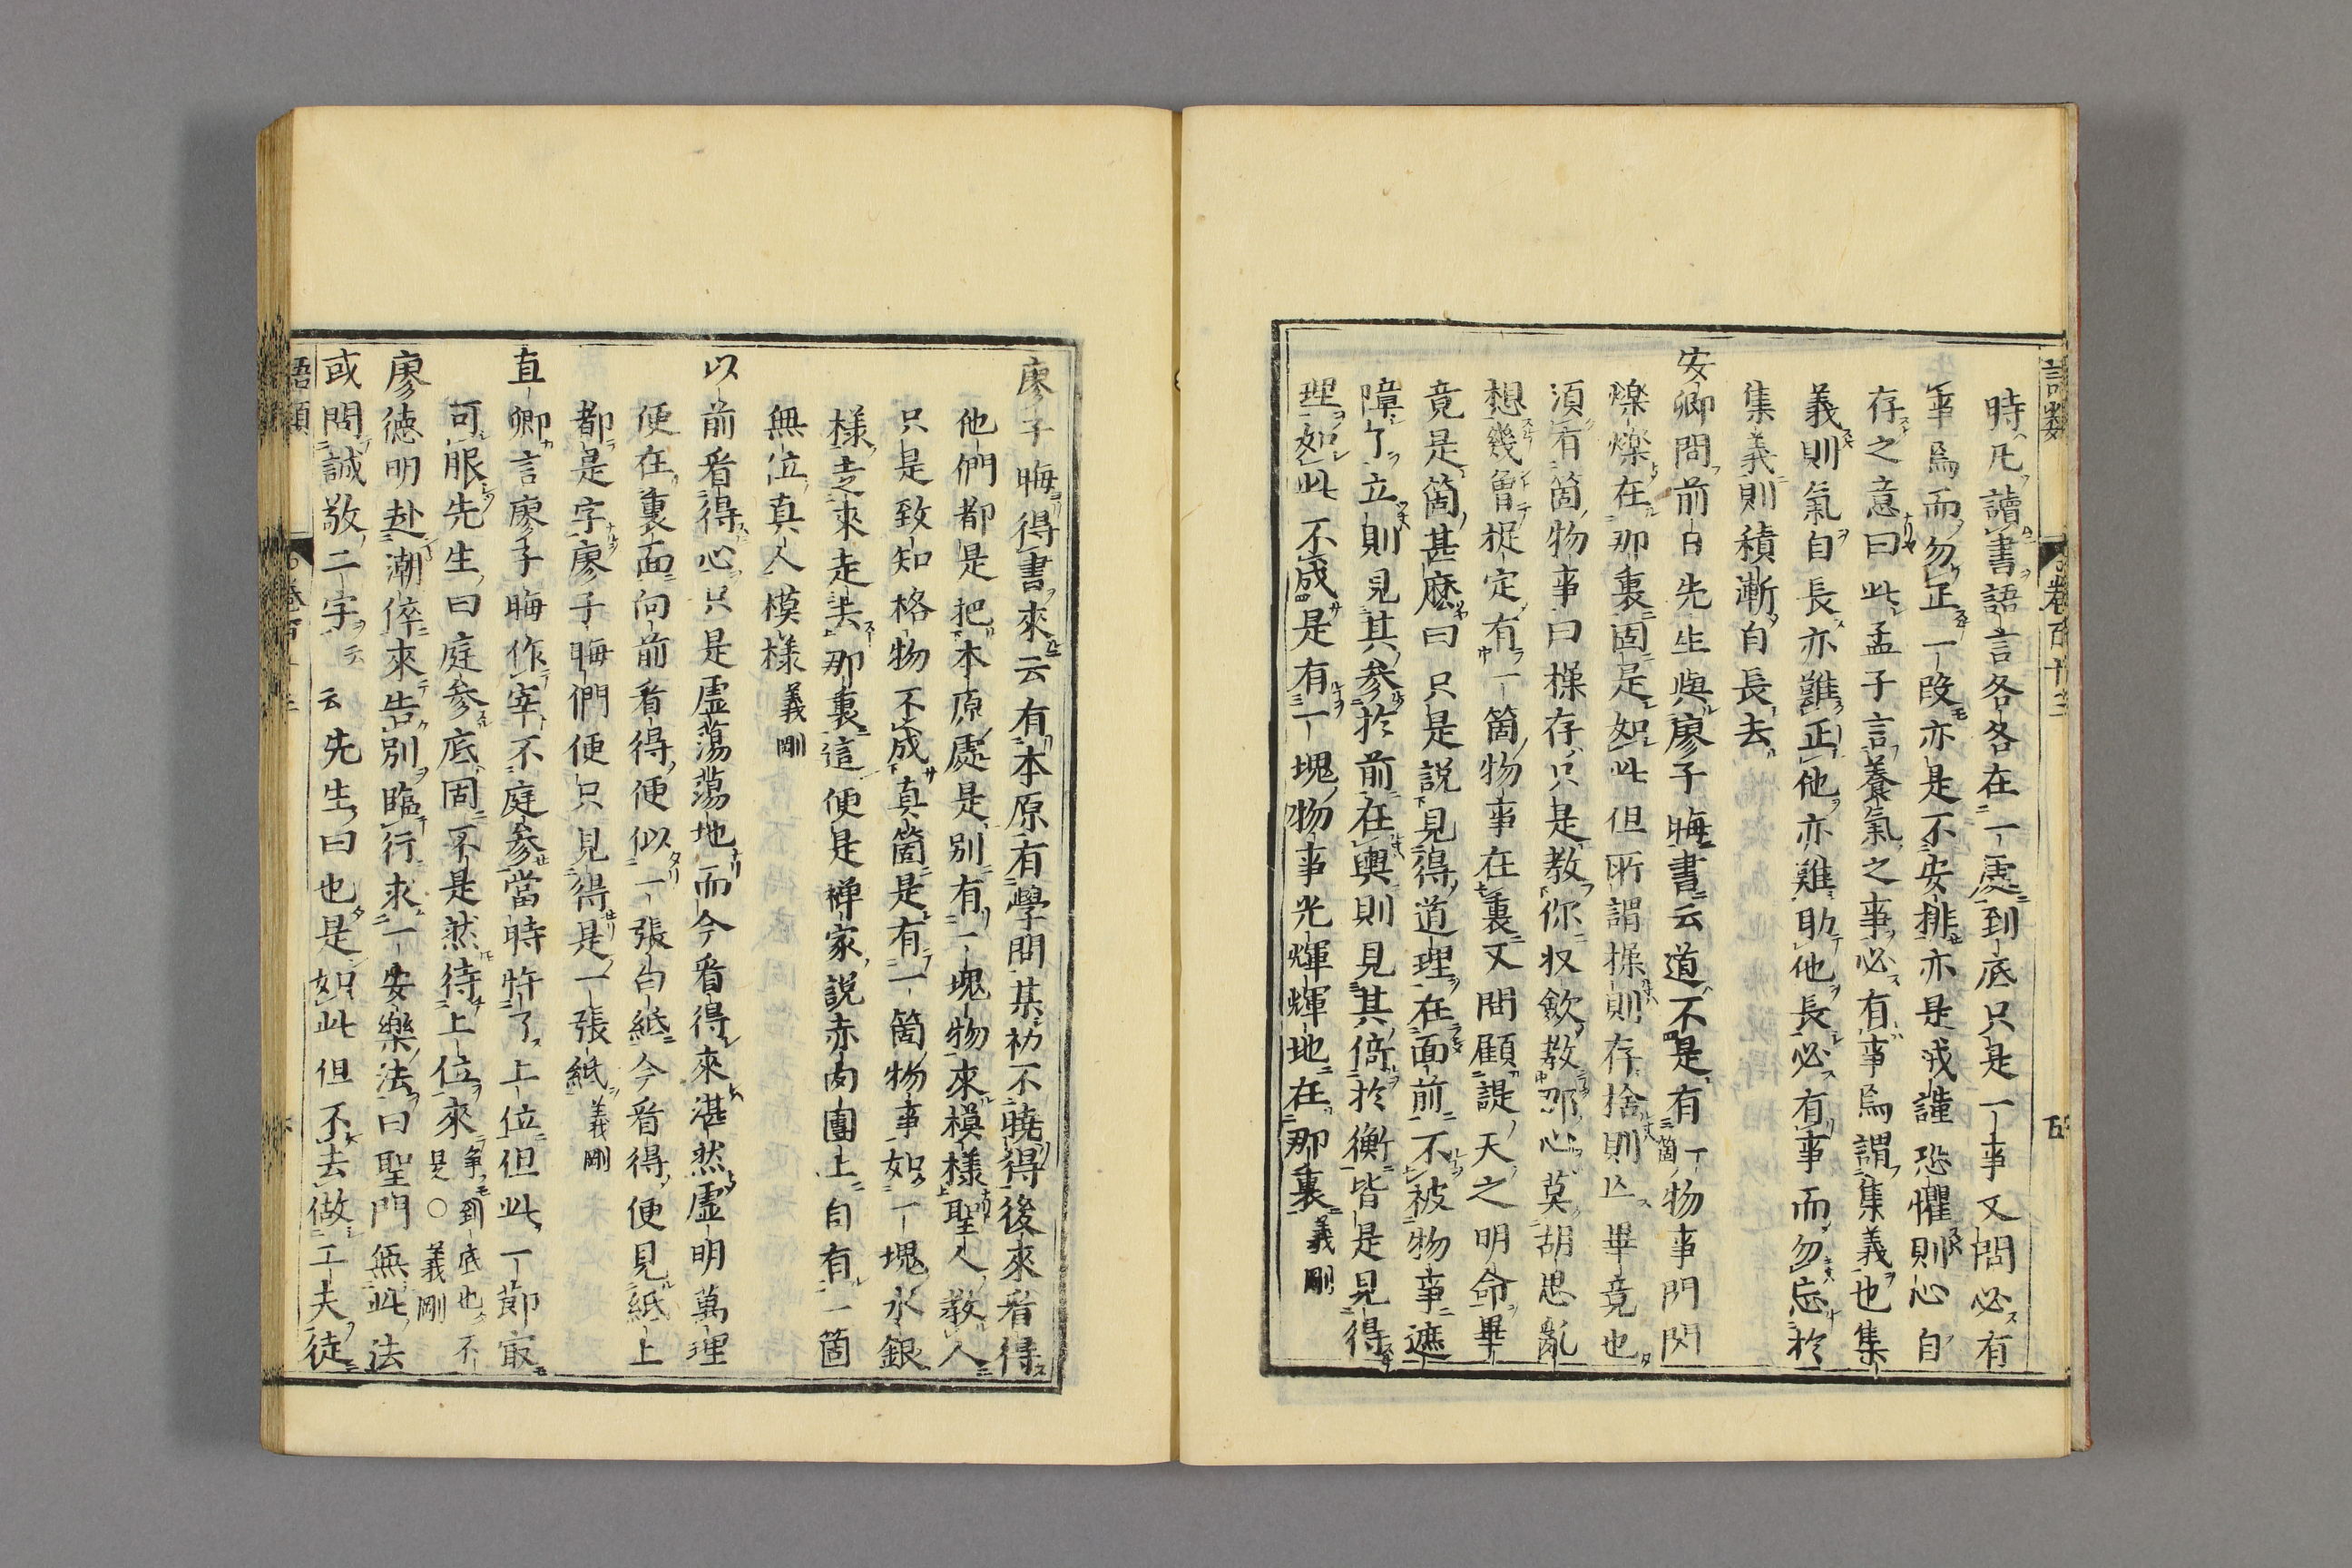 語類 卷百十三 五
時凡讀書語言各各在一處到底只是一事又問必有
事焉而勿正一段亦是不安排亦是戒謹恐懼則心自
存之意曰此孟子言養氣之事必有事焉謂集義也集
義則氣自長亦難正他亦難助他長必有事而勿忘於
集義則積漸自長去
安卿問前日先生與廖子晦書云道不是有一箇物事閃閃
爍爍在那裏固是如此但所謂操則存捨則亡畢竟也
須有箇物事曰操存只是教你収斂教那心莫胡思亂
想幾曾捉定有一箇物事在裏又問顧諟天之明命畢
竟是箇甚麽曰只是説見得道理在面前不被物事遮
障了立則見其参於前在輿則見其倚於衡皆是見得
理如此不成是有一塊物事光輝輝地在那裏義剛
廖子晦得書來云有本原有學問某初不曉得後來看得
他們都是把本原處是别有一塊物來模樣聖人教人
只是致知格物不成真箇是有一箇物事如一塊水銀
樣走來走去那裏這便是禅家説赤肉團上自有一箇
無位真人模樣義剛
以前看得心只是虚蕩蕩地而今看得來湛然虚明萬理
便在裏面向前看得便似一張白紙今看得便見紙上
都是字廖子晦們便只見得是一張紙義剛
直卿言廖子晦作宰不庭参當時忤了上位但此一節㝡
可服先生曰庭参底固不是然待上位來争到底也不是○義剛
廖德明赴潮倅來告别臨行求一安樂法曰聖門無此法
或問誠敬二字云云先生曰也是如此但不去做工夫徒
語類 卷百十三